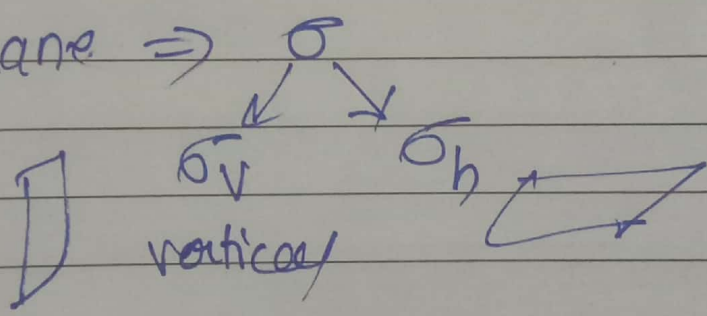 ane ⇒ σ
σv σh
vertical